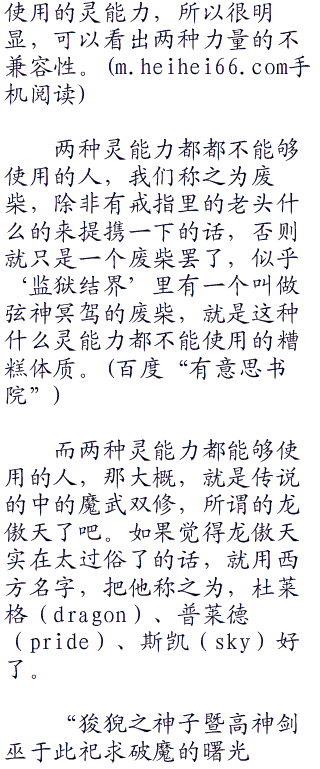 使用的灵能力，所以很明
显，可以看出两种力量的不
兼容性。(m.heihei66.com手
机阅读)
两种灵能力都都不能够
使用的人，我们称之为废
柴，除非有戒指里的老头什
么的来提携一下的话，否则
就只是一个废柴罢了，似乎
‘监狱结界’里有一个叫做
弦神冥驾的废柴，就是这种
什么灵能力都不能使用的糟
糕体质。(百度“有意思书
院”)
而两种灵能力都能够使
用的人，那大概，就是传说
的中的魔武双修，所谓的龙
傲天了吧。如果觉得龙傲天
实在太过俗了的话，就用西
方名字，把他称之为，杜莱
格（dragon）、普莱德
（pride）、斯凯（sky）好
了。
“狻猊之神子暨高神剑
巫于此祀求破魔的曙光